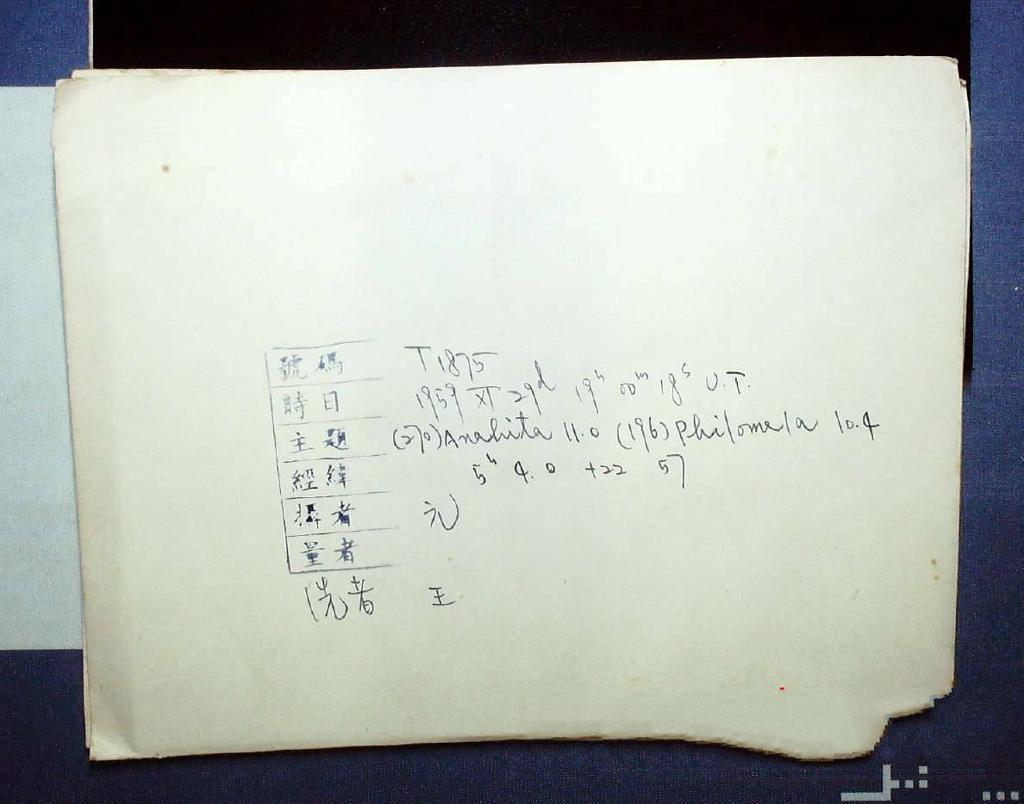 號碼 T 1875
時日 1959 XI 29d 19h 00m 18s U.T.
主題 (270) Anahita 11.0 (196) Philomela 10.4
經緯 5h 4.0 +22 57
攝者 元
量者
洗者 王